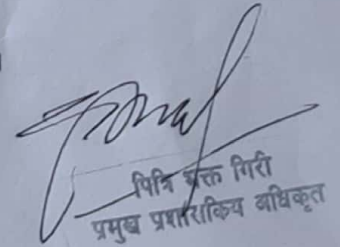 पित्रि भक्त गिरी
प्रमुख प्रशासकिय अधिकृत